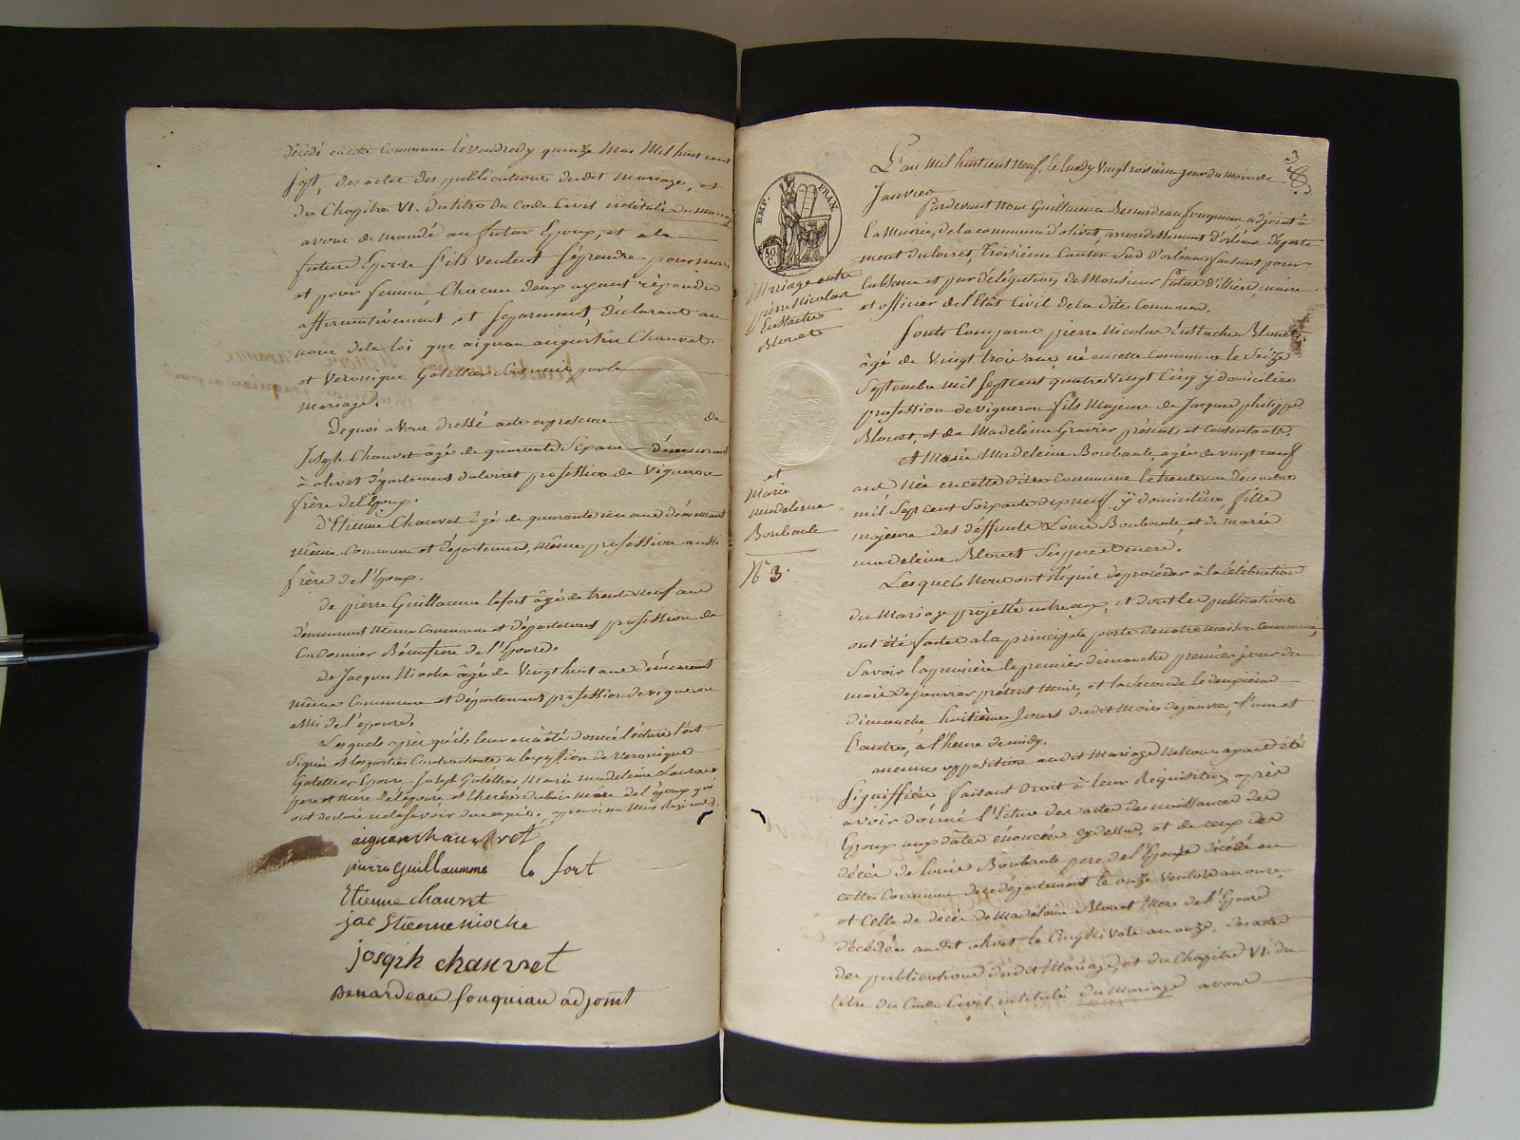 décédé en cette Commune le vendredy quinze Mai Mil huit cent
Sept, des actes des publications dudit mariage, et
du Chapitre VI. du titre du Code Civil intitulé du mariage
avons demandé au futur Epoux, et a la
future Epouse s'ils veulent se prendre pour mari
et pour femme, Chacun deux ayant répondu
affirmativement et séparément, déclarons au
nom de la loi que aignan augustin Chauvet
et Veronique Gatellier sont unis par le
mariage.
Dequoi avons dressé acte en présence de
Joseph Chauvet âgé de quarante Six ans demeurant
à olivet département du loiret profession de Vigneron
frère de l'Epoux.
D'Etienne Chauvet âgé de quarante un ans demeurant
même Commune et département, même profession aussi
frère de l'Epoux.
de pierre Guillaume lefort âgé de trente neuf ans
demeurant même Commune et département profession de
Cordonnier Beaufrere de l'Epouse.
de Jacques Nioche âgé de Vingt huit ans demeurant
même Commune et département profession de vigneron
ami de l'épouse.
Lesquels après qu'il leur en a été donné lecture l'ont
Signés et les parties Contractantes a la Veronique
Gatellier Epouse, Joseph Gatellier Marie Madeleine
pere et mere de l'épouse, et mère de l'époux qui
ont déclaré ne le savoir
aignan chauvet
pierre Guillaumme le fort
Etienne chauvet
jac Etienne nioche
joseph chauvet
Benardeau fouquiau adjoint
3
L'an Mil huit cent neuf, le lundy Vingt troisième jour du mois de
Janvier
EMP. FRAN.
Pardevant Nous Guillaume Benardeau fouquiau adjoint à
la Mairie, de la commune d'olivet, arrondissement d'orléans départe
ment du loiret, troisième Canton Sud d'orléans faisant pour
l'absence et par délégation de Monsieur maire
et officier de l'Etat Civil de la dite Commune.
Mariage entre
pierre Nicolas
Eustache
Blouet
Sont Comparus pierre Nicolas Eustache Blouet
âgé de Vingt trois ans, né en cette Commune le Seize
Septembre mil Sept cent quatre Vingt Cinq y domicilié
profession de vigneron fils Majeur de Jacques philippe
Blouet, et de Madeleine Gravier présents et Consentants.
et
Marie
madeleine
Boubault
N° 3.
Et Marie Madeleine Boubault, agée de vingt neuf
ans née en cette dite Commune le trente un décembre
mil Sept cent Soixante dix neuf, y domiciliée fille
majeure des deffunts Louis Boubault et de marie
madeleine Blouet Ses pere et mere.
Lesquels Nous ont Requis de procéder à la célébration
du Mariage projetté entre eux, et dont les publications
ont été faites a la principale porte de notre maison Commune,
Savoir la première le premier dimanche premier jour du
mois de janvier présent mois, et la Seconde le deuxième
dimanche huitième Jours dudit Mois de janvier, l'un et
l'autre, à l'heure de midy.
aucune opposition audit Mariage ne Nous ayant été
Signiffiée faisant Droit à leur Réquisition, après
avoir donné l'Ecture des actes de naissances des
Epoux aux dates énoncées cy dessus, et de ceux des
décès de Louis Boubault pere de l'Epouse décédé en
cette Commune de ce département le onze
et Celle de décès de Madeleine Blouet Mere de l'Epouse
décédée audit olivet le Cinq Nivôse an onze, des actes
des publications dudit Mariage, et du Chapitre VI. du
titre du Code Civil intitulé du Mariage avons